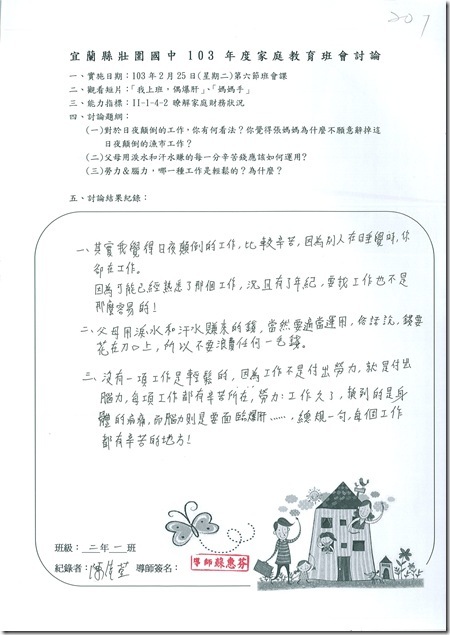 207
宜蘭縣壯圍國中 103 年度家庭教育班會討論
一、實施日期：103 年 2 月 25 日(星期二)第六節班會課
二、觀看短片：「我上班，偶爆肝」、「媽媽手」
三、能力指標：II-1-4-2 瞭解家庭財務狀況
四、討論題綱：
(一)對於日夜顛倒的工作，你有何看法？你覺得張媽媽為什麼不願意辭掉這
日夜顛倒的漁市工作？
(二)父母用淚水和汗水賺的每一分辛苦錢應該如何運用？
(三)勞力&腦力，哪一種工作是輕鬆的？為什麼？
五、討論結果紀錄：
一、其實我覺得日夜顛倒的工作，比較辛苦，因為別人在睡覺時，你
卻在工作。
因為可能已經熟悉了那個工作，況且有了年紀，要找工作也不是
那麼容易的！
二、父母用淚水和汗水賺來的錢，當然要適當運用，俗話說，錢要
花在刀口上，所以不要浪費任何一毛錢。
三、沒有一項工作是輕鬆的，因為工作不是付出勞力，就是付出
腦力，每項工作都有辛苦所在，勞力：工作久了，換到的是身
體的病痛，而腦力則是要面臨爆肝……，總規一句，每個工作
都有辛苦的地方！
班級：二年一班
紀錄者：陳 導師簽名：導師蘇惠芬